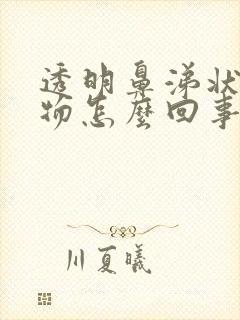 透明鼻涕状
物怎麼回事
川夏曦